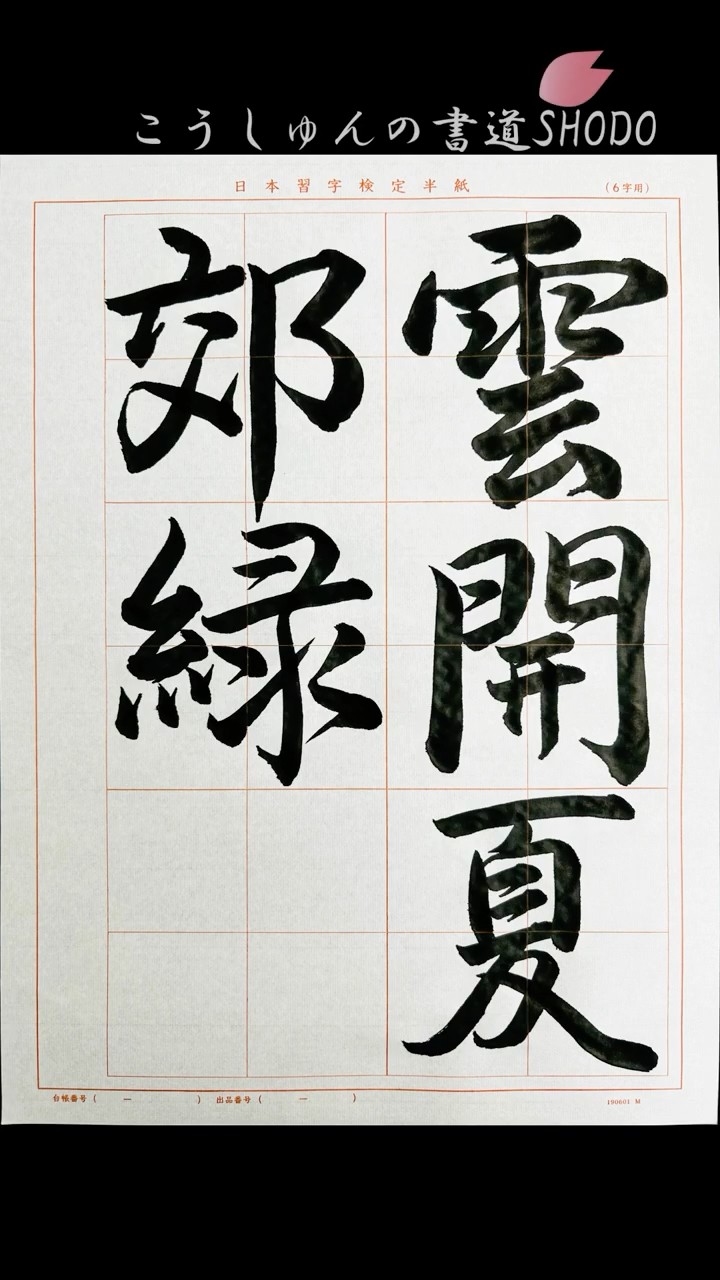 こうしゅんの書道SHODO
日本習字検定半紙
(6字用)
雲開夏
郊緑
台帳番号( ー )  出品番号( ー )
190601 M